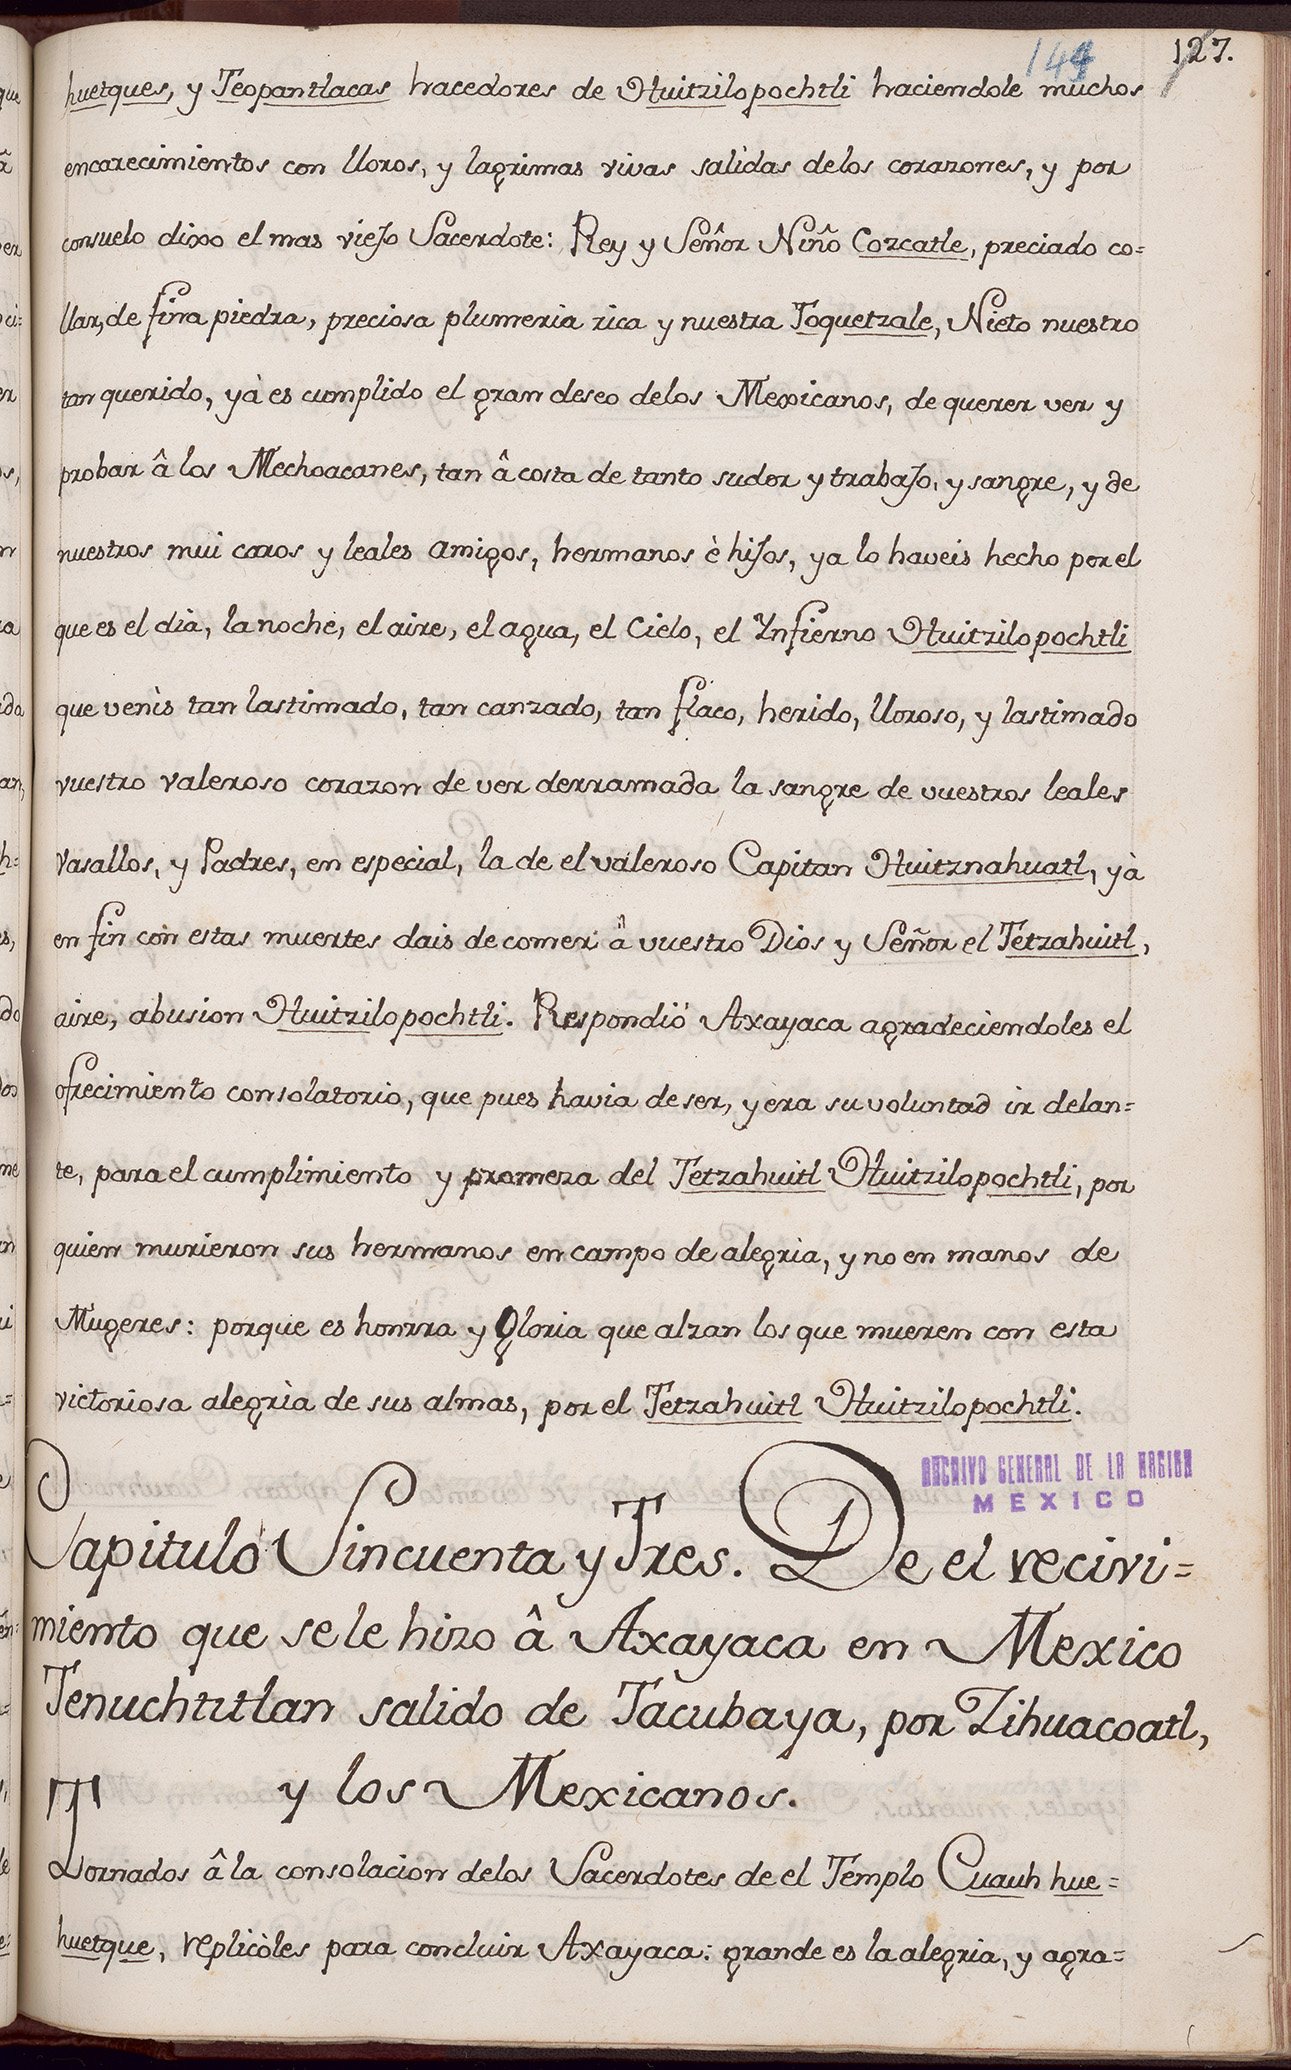 144 127.
huetques, y Teopantlacas hacedores de Huitzilopochtli haciendole muchos
encarecimientos con lloros, y lagrimas vivas salidas delos corazones, y por
consuelo dixo el mas viejo Sacerdote: Rey y Señor Niño Cozcatle, preciado co=
llar, de fina piedra, preciosa plumeria rica y nuestra Toquetzale, Nieto nuestro
tan querido, yà es cumplido el gran deseo delos Mexicanos, de querer ver y
probar â los Mechoacanes, tan â costa de tanto sudor y trabajo, y sangre, y de
nuestros mui caros y leales amigos, hermanos è hijos, ya lo haveis hecho por el
que es el dia, la noche, el aire, el agua, el Cielo, el Ynfierno Huitzilopochtli
que venìs tan lastimado, tan canzado, tan flaco, herido, lloroso, y lastimado
vuestro valeroso corazon de ver derramada la sangre de vuestros leales
Vasallos, y Padres, en especial, la de el valeroso Capitan Huitznahuatl, yà
en fin con estas muertes dais de comer â vuestro Dios y Señor el Tetzahuitl,
aire, abusion Huitzilopochtli. Respondió Axayaca agradeciendoles el
ofrecimiento consolatorio, que pues havia de ser, y era su voluntad ir delan=
te, para el cumplimiento y promeza del Tetzahuitl Huitzilopochtli, por
quien murieron sus hermanos en campo de alegria, y no en manos de
Mugeres: porque es honrra y Gloria que alzan los que mueren con esta
victoriosa alegrìa de sus almas, por el Tetzahuitl Huitzilopochtli.
ARCHIVO GENERAL DE LA NACION
MEXICO
Capitulo Sincuenta y Tres. De el recivi=
miento que se le hizo â Axayaca en Mexico
Tenuchtitlan salido de Tacubaya, por Zihuacoatl,
y los Mexicanos.
Tornados â la consolacion delos Sacerdotes de el Templo Cuauh hue=
huetque, replicòles para concluir Axayaca: grande es la alegria, y agra=